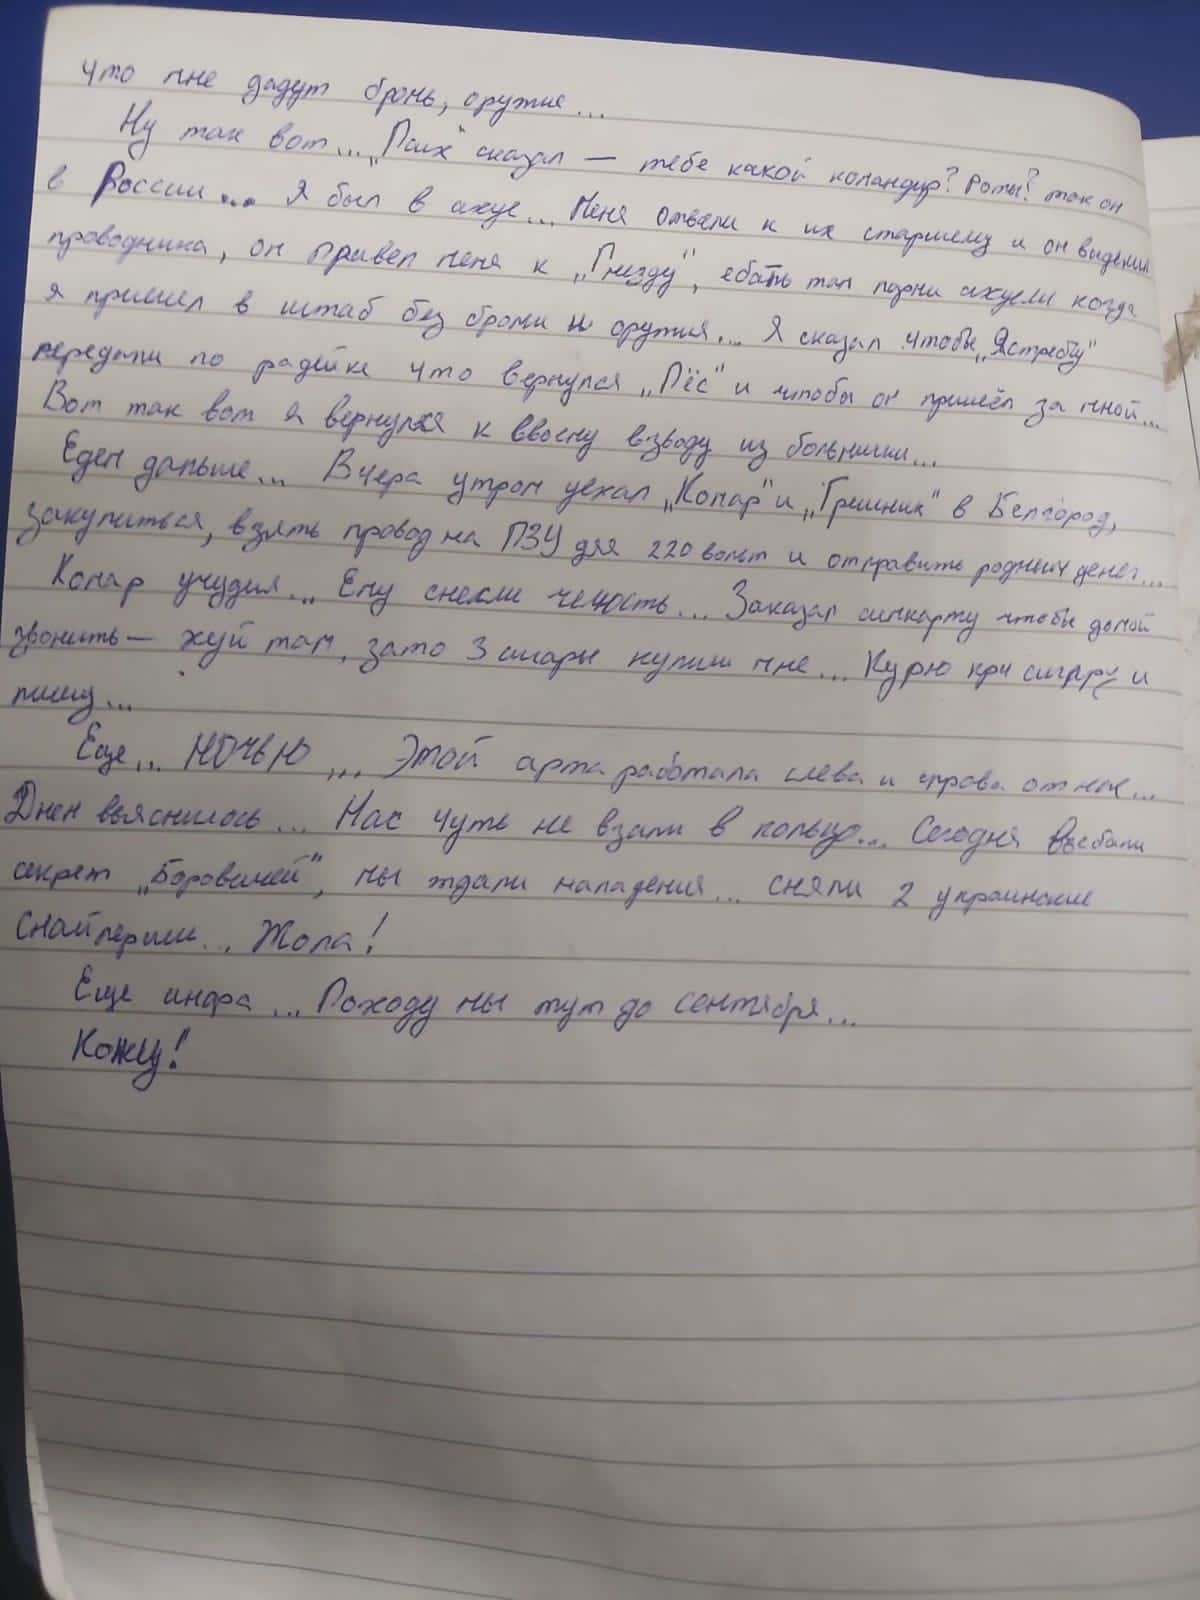 что мне дадут бронь, оружие...
Ну так вот... „Псих" сказал — тебе какой командир? Роты? так он
в России... Я был в ахуе... Меня отвели к их старшему и он выделил
проводника, он привел меня к „Гнезду", ебать там парни ахуели когда
я пришел в штаб без брони и оружия... Я сказал чтобы „Ястребу"
передали по радейке что вернулся „Пёс" и чтобы он пришёл за мной...
Вот так вот я вернулся к своему взводу из больницы...
Едем дальше... Вчера утром уехал „Комар" и „Грешник" в Белгород,
закупиться, взять провод на ПЗУ для 220 вольт и отправить родным денег...
Комар учудил... Ему снесли челюсть... Заказал симкарту чтобы домой
звонить — хуй там, зато 3 сигары купили мне... Курю сигару и
пишу...
Еще... НОЧЬЮ ... Этой арта работала слева и справа от нас...
Днем выяснилось... Нас чуть не взяли в кольцо... Сегодня въебали
секрет „Боровичей", мы ждали нападения... сняли 2 украинские
снайперши... Жопа!
Еще инфа ... Походу мы тут до сентября...
Кожу!